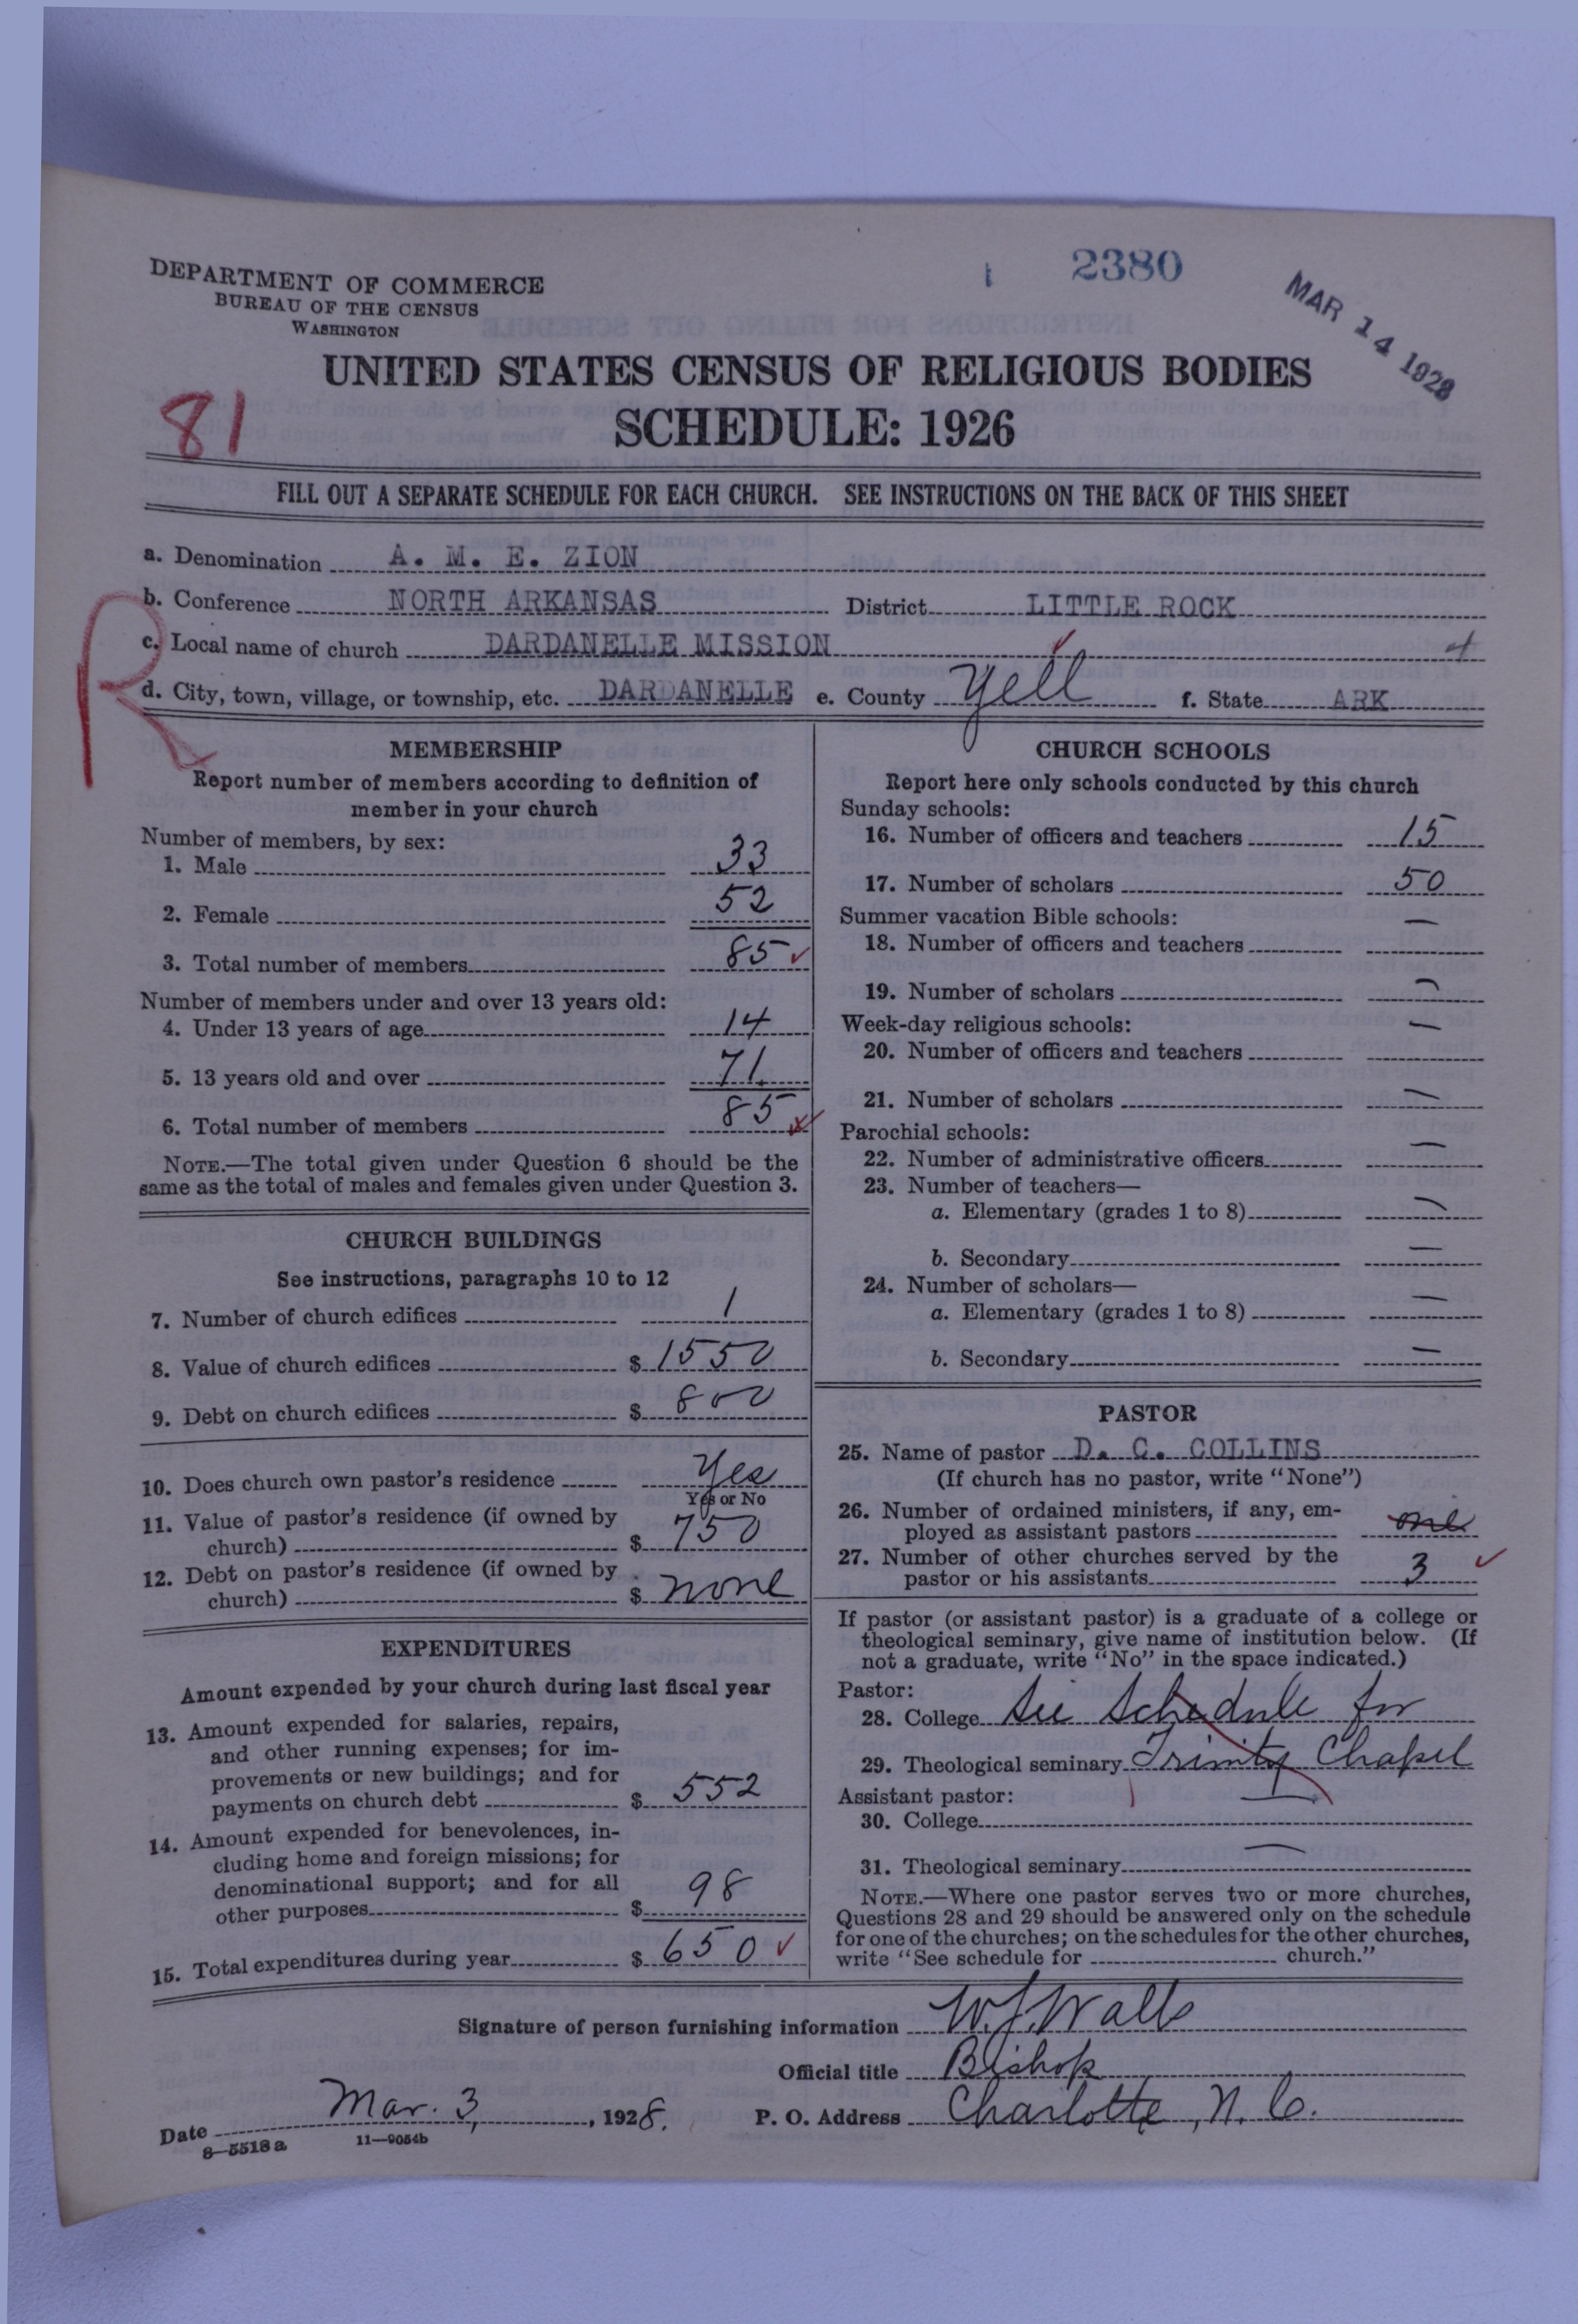 DEPARTMENT OF COMMERCE
BUREAU OF THE CENSUS
WASHINGTON
2380
MAR 14 1928
UNITED STATES CENSUS OF RELIGIOUS BODIES
SCHEDULE: 1926
81
FILL OUT A SEPARATE SCHEDULE FOR EACH CHURCH. SEE INSTRUCTIONS ON THE BACK OF THIS SHEET
a. Denomination A. M. E. ZION
b. Conference NORTH ARKANSAS District LITTLE ROCK
R
c. Local name of church DARDANELLE MISSION 4
d. City, town, village, or township, etc. DARDANELLE e. County Yell f. State ARK
MEMBERSHIP
Report number of members according to definition of
member in your church
Number of members, by sex:
1. Male 33
2. Female 52
3. Total number of members 85
Number of members under and over 13 years old:
4. Under 13 years of age 14
5. 13 years old and over 71
6. Total number of members 85
NOTE.—The total given under Question 6 should be the
same as the total of males and females given under Question 3.
CHURCH BUILDINGS
See instructions, paragraphs 10 to 12
7. Number of church edifices 1
8. Value of church edifices $ 1550
9. Debt on church edifices $ 800
10. Does church own pastor's residence Yes
Yes or No
11. Value of pastor's residence (if owned by
church) $ 750
12. Debt on pastor's residence (if owned by
church) $ none
EXPENDITURES
Amount expended by your church during last fiscal year
13. Amount expended for salaries, repairs,
and other running expenses; for im-
provements or new buildings; and for
payments on church debt $ 552
14. Amount expended for benevolences, in-
cluding home and foreign missions; for
denominational support; and for all
other purposes $ 98
15. Total expenditures during year $ 650
CHURCH SCHOOLS
Report here only schools conducted by this church
Sunday schools:
16. Number of officers and teachers 15
17. Number of scholars 50
Summer vacation Bible schools:
18. Number of officers and teachers —
19. Number of scholars —
Week-day religious schools:
20. Number of officers and teachers —
21. Number of scholars —
Parochial schools:
22. Number of administrative officers —
23. Number of teachers—
a. Elementary (grades 1 to 8) —
b. Secondary —
24. Number of scholars—
a. Elementary (grades 1 to 8) —
b. Secondary —
PASTOR
25. Name of pastor D. C. COLLINS
(If church has no pastor, write "None")
26. Number of ordained ministers, if any, em-
ployed as assistant pastors one
27. Number of other churches served by the
pastor or his assistants 3
If pastor (or assistant pastor) is a graduate of a college or
theological seminary, give name of institution below. (If
not a graduate, write "No" in the space indicated.)
Pastor:
28. College See Schedule for
29. Theological seminary Trinity Chapel
Assistant pastor:
30. College —
31. Theological seminary —
NOTE.—Where one pastor serves two or more churches,
Questions 28 and 29 should be answered only on the schedule
for one of the churches; on the schedules for the other churches,
write "See schedule for church."
Signature of person furnishing information W. J. Walls
Official title Bishop
Date Mar. 3, 1928. P. O. Address Charlotte, N. C.
8—5518a 11—9054b